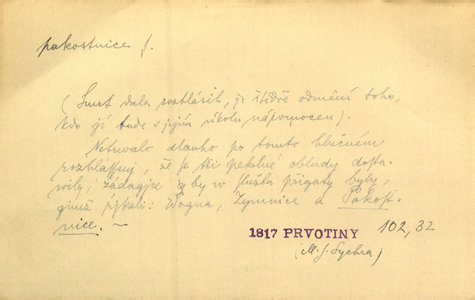 pakostnice f.
(Smrt dala rozhlásiti, že štědře odmění toho,
kdo jí bude v jejím úkolu nápomocen).
Netrwalo dlauho po tomto hlučném
rozhlássenj, že se tři pekelné obludy dosta-
wily, žádagjce aby w službu přigaty byly,
gimž řjkali: Wogna, Zymnice a Pakost-
nice. —
1817 PRVOTINY 102, 32
(M. J. Sychra)